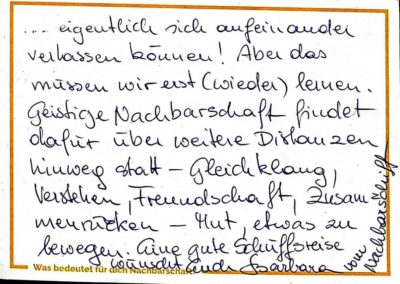 ... eigentlich sich aufeinander
verlassen können! Aber das
müssen wir erst (wieder) lernen.
Geistige Nachbarschaft findet
dafür über weitere Distanzen
hinweg statt – Gleichklang,
Verstehen, Freundschaft, Zusam
menrücken – Mut, etwas zu
bewegen. Eine gute Schiffsreise
Was bedeutet für dich Nachbarschaft
wünscht euch Barbara
vom
Nachbarschiff